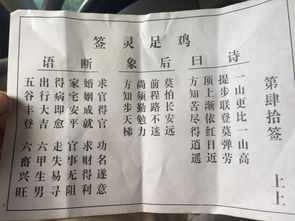 鸡足灵签
第肆拾签 上上
诗曰
一山更比一山高
提步联登莫弹劳
顶上渐依红日近
方知苦尽得逍遥
后象
莫怕长安远
前程路不迷
尚须勤勉力
方知步天梯
断语
求官得官 功名遂意
婚姻成就 求财得利
家宅安平 官事无阻
得病即愈 走失易寻
出行大吉 六甲生男
五谷丰登 六畜兴旺